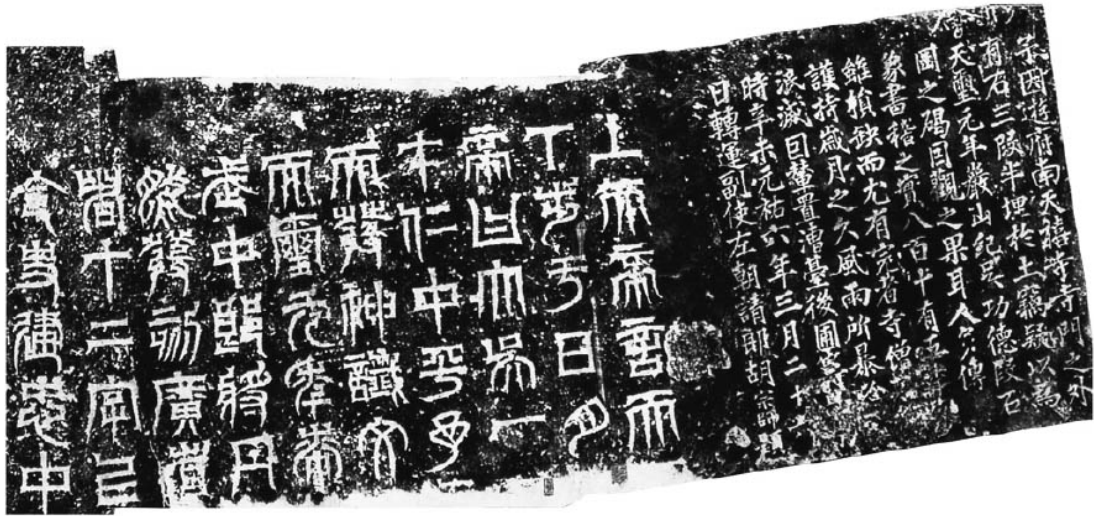 余因遊府南天禧寺寺門之外
有石三段半埋於土竊疑以為
天璽元年巖山紀吳功德段石
岡之碣目觀之果耳
篆書稽之實八百十有
雖損缺而尤有完者寺僧
護持歲月之久風雨所暴
浪滅因輦置漕臺後圃
時辛未元祐六年三月二十五
日轉運副使左朝請郎胡宗師題
上天帝言天
下步于日月
帝曰大吳一
中平
天發神讖文
天璽元年
武中郎將丹
然發刻廣省
十二字已
令史建忠中